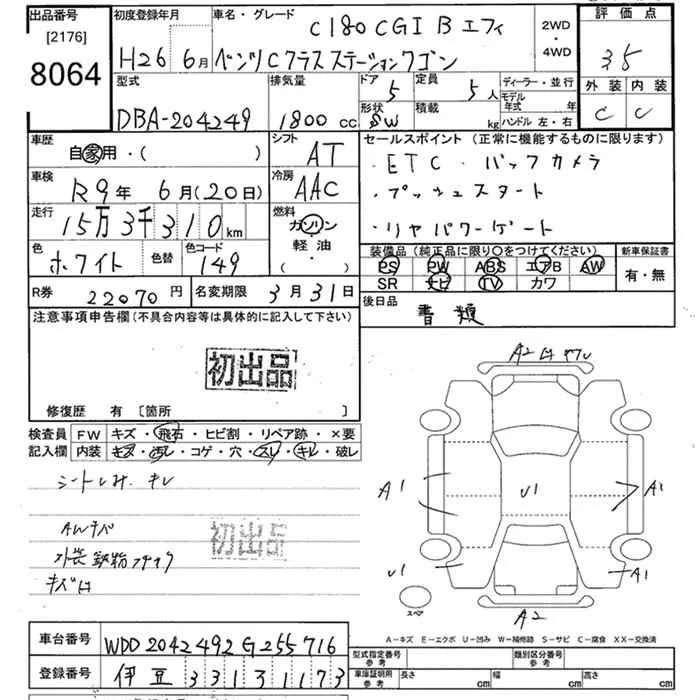 出品番号 初度登録年月 車名・グレード 2WD・4WD 評価点
[2176] C180 CGI B エフィ
8064 H26 6月 ベンツCクラスステーションワゴン 3.5
型式 排気量 ドア 5 定員 5人 ディーラー・並行 外装 内装
DBA-204249 1800cc 形状 SW 積載 kg モデル年式 年 ハンドル 左・右 C C
車歴 シフト セールスポイント (正常に機能するものに限ります)
自家用・( ) AT ・ETC・バックカメラ
車検 R9年 6月(20日) 冷房 AAC ・プッシュスタート
走行 15万3千310km 燃料 ガソリン・軽油・( ) ・リヤパワーゲート
色 ホワイト 色替 色コード 149
装備品 (純正品に限り○をつけてください) 新車保証書
PS PW ABS エアB AW 有・無
SR ナビ TV カワ
R券 22070円 名変期限 3月31日 後日品 書類
注意事項申告欄(不具合内容等は具体的に記入して下さい)
初出品
修復歴 有 [箇所 ]
検査員記入欄 FW キズ・飛石・ヒビ割・リペア跡・×要
内装 キズ・汚レ・コゲ・穴・スレ・キレ・破レ
シートしみ. キレ
初出品
キズ有
A2
A1 U1 A1
U1 A1
スペア A2
A-キズ E-エクボ U-凹み W-補修跡 S-サビ C-腐食 XX-交換済
車台番号 WDD2042492G255716 型式指定番号 参考 類別区分番号 参考
登録番号 伊豆 331 3 1173 車庫証明用 参考 長さ cm 幅 cm 高さ cm